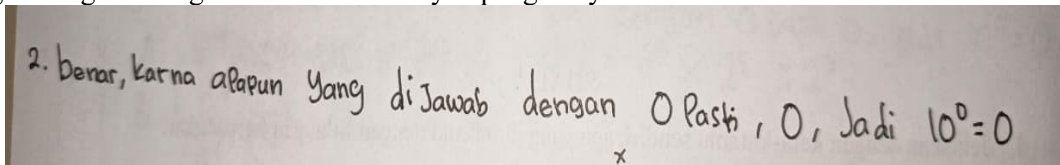 2. benar, karna apapun yang dijawab dengan 0 Pasti, 0, Jadi 10⁰=0
x